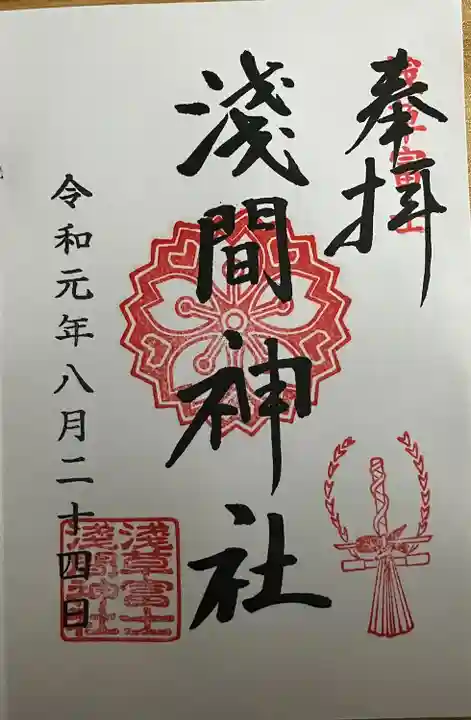 奉拝
浅草富士
淺間神社
令和元年八月二十四日
淺草富士
淺間神社